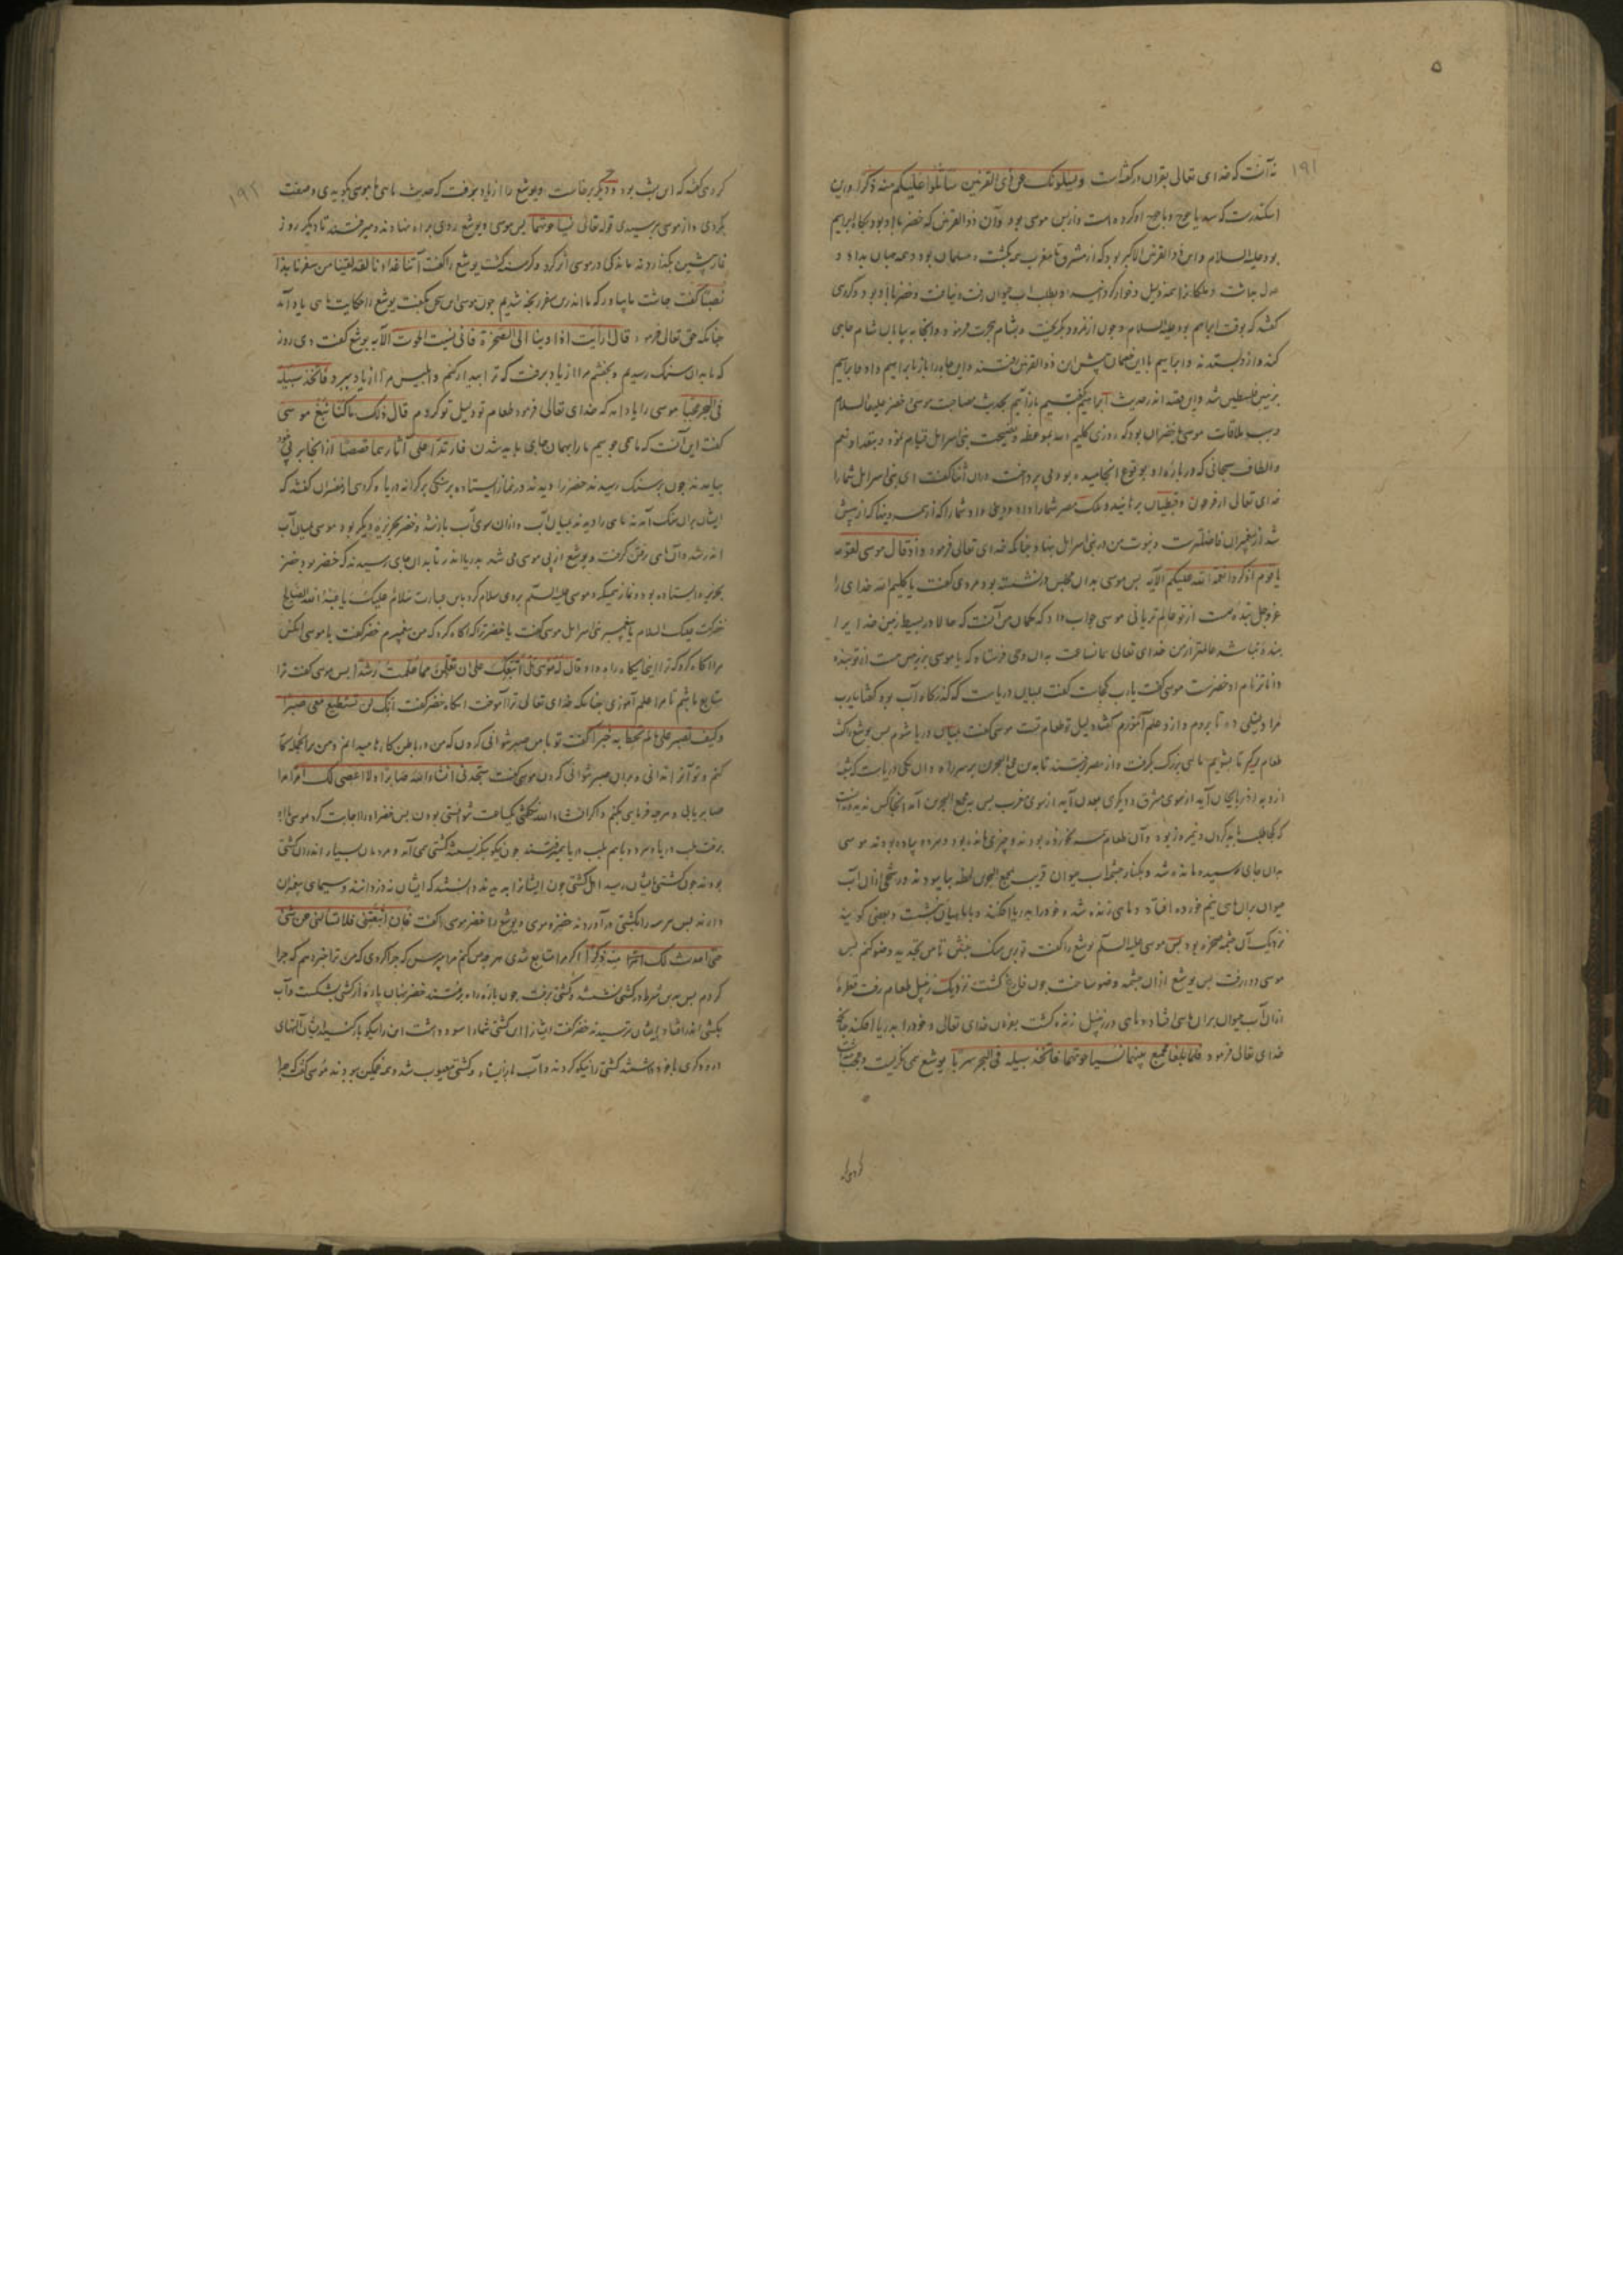 ۵
۱۹۱
نه آنست که خدای تعالی بقران در گفته است ویسئلونک عن ذی القرنین ساتلوا علیکم منه ذکرا و این
اسکندرست که سد یاجوج و ماجوج او کرده است و از پس موسی بود و آن ذوالقرنین که خضر با او بود بگاه ابراهیم
بود علیه السلام و این ذوالقرنین الاکبر بود که از مشرق تا مغرب همه بگشت و مسلمان بود و همه جهان بداد و
عدل بداشت و ملکانرا همه ذلیل و خوار کرد و بطلب آب حیوان رفت و نیافت و خضر با او بود و گروهی
گفتند که بوقت ابراهیم بود علیه السلام و چون از نمرود بگریخت و بشام هجرت فرمود و آنجا به بیابان شام جاهی
کند و از و بستدند و ابراهیم با این خصمان پیش این ذوالقرنین رفتند و این چاه را باز بابراهیم داد و ابراهیم
بزمین فلسطین شد و این قصه اندر حدیث ابراهیم گفتیم باز آئیم بحدیث مصاحبت موسی و خضر علیه السلام
و سبب ملاقات موسی با خضر آن بود که روزی کلیم الله بموعظه و نصیحت بنی اسرائیل قیام نموده و بتعداد نعم
و الطاف سبحانی که درباره او بوقوع انجامیده بود می پرداخت در آن اثنا گفت ای بنی اسرائیل شما را
خدای تعالی از فرعون و قبطیان برهانید و ملک مصر شما را داد و
شد از پیغمبران فاضلترست و نبوت من در بنی اسرائیل نهاد چنانکه خدای تعالی فرمود و اذ قال موسی لقومه
یا قوم اذکروا نعمة الله علیکم الآیه پس موسی بدان مجلس در نشسته بود مردی گفت یا کلیم الله خدای را
عز و جل بنده هست از تو عالم تر یا نی موسی جواب داد که گمان من آنست که حالا در بسیط زمین خدایرا
بنده نباشد عالمتر از من خدای تعالی همانساعت بدان وحی فرستاد که یا موسی بزمین من هست از تو بنده
داناتر نام او خضرست موسی گفت یارب کجاست گفت بمیان دریاست که گذرگاه آب بود گفتا یارب
مرا دلیلی ده تا بروم و ازو علم آموزم گفتا دلیل تو طعام تست موسی گفت بمیان دریا شوم پس یوشع را گفت
طعام برگیر تا بشویم ماهی بزرگ بگرفت و از مصر برفتند تا بدین مجمع البحرین بر سر راه و آن یکی دریاست که
از دیه اذربایجان آید از سوی مشرق و دیگری بعدن آید از سوی مغرب پس به مجمع البحرین آمد آنجا کس ندید و دانست
که کجا طلب باید کردن و نیمروز بود و آن طعام همه بخورده بودند و چیزی مانده بود و هر دو پیاده بودند موسی
بدان جای رسیده مانده شد و بکنار چشمه آب حیوان قریب مجمع البحرین لحظه بیاسودند و رشحی از آن آب
حیوان بر آن ماهی نیم خورده افتاد و ماهی زنده شد و خود را بدریا افکند و بعضی گویند
نزدیک آن چشمه صخره بود پس موسی علیه السلم یوشع را گفت تو برین سنگ بنشین تا من تجدید وضو کنم پس
موسی دور رفت پس یوشع از آن چشمه وضو ساخت چون فارغ گشت نزدیک زنبیل طعام رفت قطره
از آن آب حیوان بر آن ماهی افتاد و ماهی در زنبیل زنده گشت بفرمان خدای تعالی و خود را بدریا افکند چنانکه
خدای تعالی فرمود فلما بلغا مجمع بینهما نسیا حوتهما فاتخذ سبیله فی البحر سربا یوشع همی نگریست و
۱۹۲
گروهی گفتند که این شب بود و دیگر برخاست و یوشع را از یاد برفت که حدیث ماهی با موسی بگویدی و صفت
بکردی و از موسی بپرسیدی قوله تعالی نسیا حوتهما پس موسی و یوشع روی براه نهادند و میرفتند تا دیگر روز
نماز پیشین بگذاردند ماندگی در موسی اثر کرد و گرسنه گشت یوشع را گفت آتنا غداءنا لقد لقینا من سفرنا هذا
نصبا گفت چاشت ما بیاور که ما اندرین سفر رنجه شدیم چون موسی این سخن بگفت یوشع را حکایت ماهی یاد آمد
چنانکه حق تعالی فرمود قال ارایت اذ اوینا الی الصخرة فانی نسیت الحوت الآیه یوشع گفت دی روز
که ما بدان سنگ رسیدیم و بخفتیم مرا از یاد برفت که ترا بیدار کنم و ابلیس مرا از یاد ببرد فاتخذ سبیله
فی البحر عجبا موسی را یاد آمد که خدای تعالی فرمود طعام تو دلیل تو کردم قال ذلک ما کنا نبغ موسی
گفت این آنست که ما می جوییم ما را بهمان جای باید شدن فارتدا علی آثارهما قصصا از آنجا بر پی
بیامدند چون بر سنگ رسیدند خضر را دیدند در نماز ایستاده بر خشکی بر کرانه دریا و گروهی از مفسران گفتند که
ایشان بر آن سنگ آمدند ماهی را دیدند بمیان آب و از آن سوی آب باز نشد و خضر بجزیره دیگر بود موسی بمیان آب
اندر شد و آن ماهی رفتن گرفت و یوشع از پی موسی می شد بدریا اندر تا بدان جای رسیدند که خضر بود و خضر
بجزیره ایستاده بود و نماز میکرد موسی علیه السلم بروی سلام کرد باین عبارت سلام علیک یا عبدا لله الصالح
خضر گفت علیک السلام یا پیغمبر بنی اسرائیل موسی گفت یا خضر ترا که آگاه کرد که من پیغمبرم خضر گفت یا موسی آنکس
مرا آگاه کرد که ترا اینجایگاه راه داد قال له موسی هل اتبعک علی ان تعلمن مما علمت رشدا پس موسی گفت ترا
متابع باشم تا مرا علم آموزی چنانکه خدای تعالی ترا آموخت آنگاه خضر گفت انک لن تستطیع معی صبرا
وکیف تصبر علی ما لم تحط به خبرا گفت تو با من صبر نتوانی کردن که من در باطن کارها میدانم و من
کنم و تو آنرا ندانی و بر آن صبر نتوانی کردن موسی گفت ستجدنی انشاء الله صابرا ولا اعصی لک امرا مرا
صابر یابی و هرچه فرمایی بکنم و اگر انشاءالله نگفتی یکساعت نتوانستی بودن پس خضر او را اجابت کرد موسی را
برفت بلب دریا و هر دو با هم بلب دریا همی رفتند چون نیکو بنگریستند کشتی همی آمد و مردمان بسیار اندران کشتی
بودند چون کشتی بایشان رسید اهل کشتی چون ایشانرا بدیدند دانستند که ایشان نه دزدانند و سیمای پیغمبران
دارند پس هر سه را بکشتی در آوردند خضر و موسی و یوشع را خضر موسی را گفت فان اتبعتنی فلا تسألنی عن شئ
حتی احدث لک منه ذکرا اگر مرا متابع شدی هرچه من کنم مرا مپرس که چرا کردی که من ترا خبر دهم که چرا
کردم پس بدین شرط در کشتی نشستند و کشتی برفت چون پاره راه برفتند خضر بنهان پاره از کشتی بشکست و آب
بکشتی اندر افتاد و ایشان بترسیدند خضر گفت ایشانرا این کشتی شما را سود داشت این را نیکو باز کنید ایشان آلتهای
درودگری با خود داشتند کشتی را نیکو کردند و آب باز ایستاد و کشتی معیوب شد و همه غمگین ببودند موسی گفت که چرا